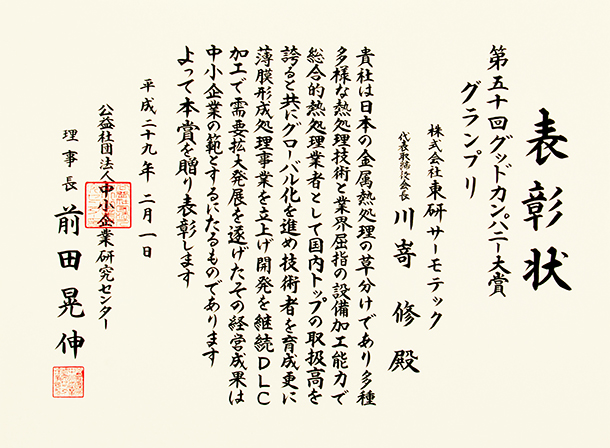 表彰状
第五十回グッドカンパニー大賞
グランプリ
株式会社東研サーモテック
代表取締役会長
川嵜 修 殿
貴社は日本の金属熱処理の草分けであり多種
多様な熱処理技術と業界屈指の設備加工能力で
総合的熱処理業者として国内トップの取扱高を
誇ると共にグローバル化を進め技術者を育成更に
薄膜形成処理事業を立上げ開発を継続DLC
加工で需要拡大発展を遂げたその経営成果は
中小企業の範とするにたるものであります
よって本賞を贈り表彰します
平成二十九年 二月一日
公益社団法人中小企業研究センター
理事長 前田晃伸